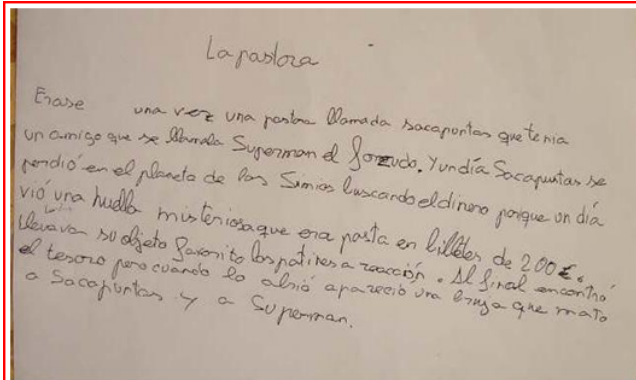 La pastora
Erase una vez una pastora llamada sacapuntas que tenia
un amigo que se llamala Superman el forzudo. Y un día Sacapuntas se
perdió en el planeta de los Simios buscando el dinero porque un día
vió una huella misteriosa que era pasta en billetes de 200€.
llevava su objeto favorito los patines a reacción. Al final encontró
el tesoro pero cuando lo abrió apareció una bruja que mato
a Sacapuntas y a Superman.